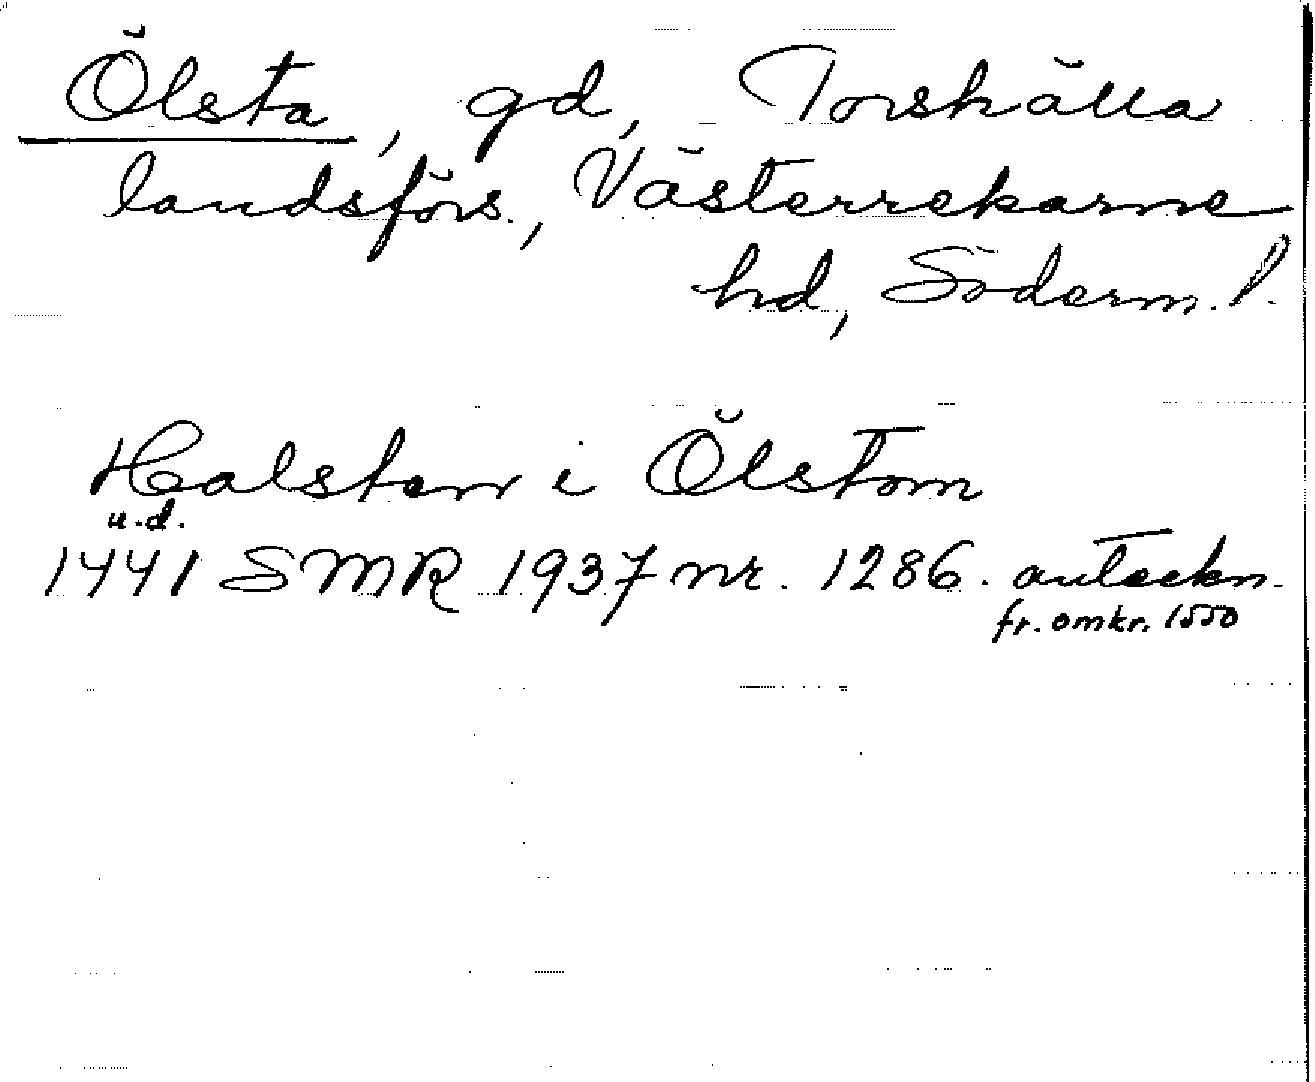 Ölsta, gd, Torshälla
landsförs., Västerrekarne
hd, Söderm. l.
Halsten i Ölstom
u.d.
1441 SMR 1937 nr. 1286. anteckn.
fr. omkr. 1550